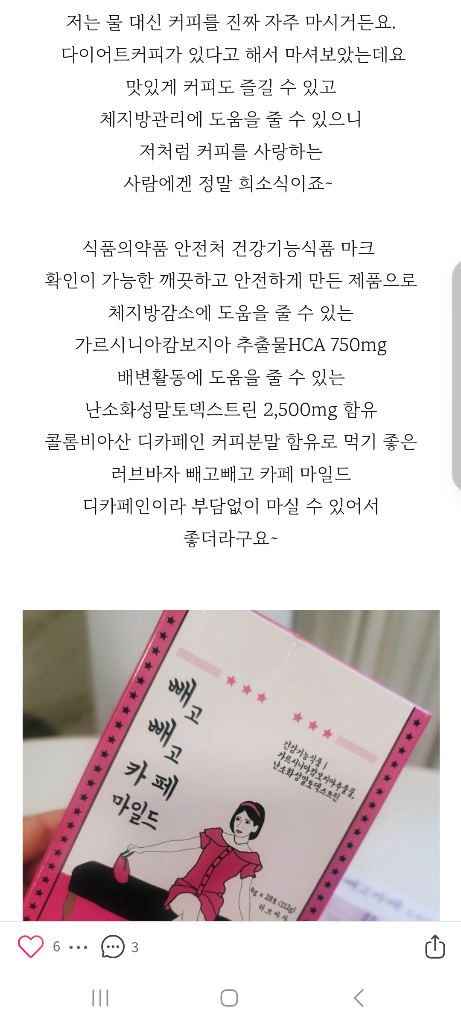 저는 물 대신 커피를 진짜 자주 마시거든요.
다이어트커피가 있다고 해서 마셔보았는데요
맛있게 커피도 즐길 수 있고
체지방관리에 도움을 줄 수 있으니
저처럼 커피를 사랑하는
사람에겐 정말 희소식이죠~
식품의약품 안전처 건강기능식품 마크
확인이 가능한 깨끗하고 안전하게 만든 제품으로
체지방감소에 도움을 줄 수 있는
가르시니아캄보지아 추출물HCA 750mg
배변활동에 도움을 줄 수 있는
난소화성말토덱스트린 2,500mg 함유
콜롬비아산 디카페인 커피분말 함유로 먹기 좋은
러브바자 빼고빼고 카페 마일드
디카페인이라 부담없이 마실 수 있어서
좋더라구요~
빼고
빼고
카페
마일드
건강기능식품 |
가르시니아캄보지아추출물,
난소화성말토덱스트린
4g x 28포 (112g)
러브바자
6
3